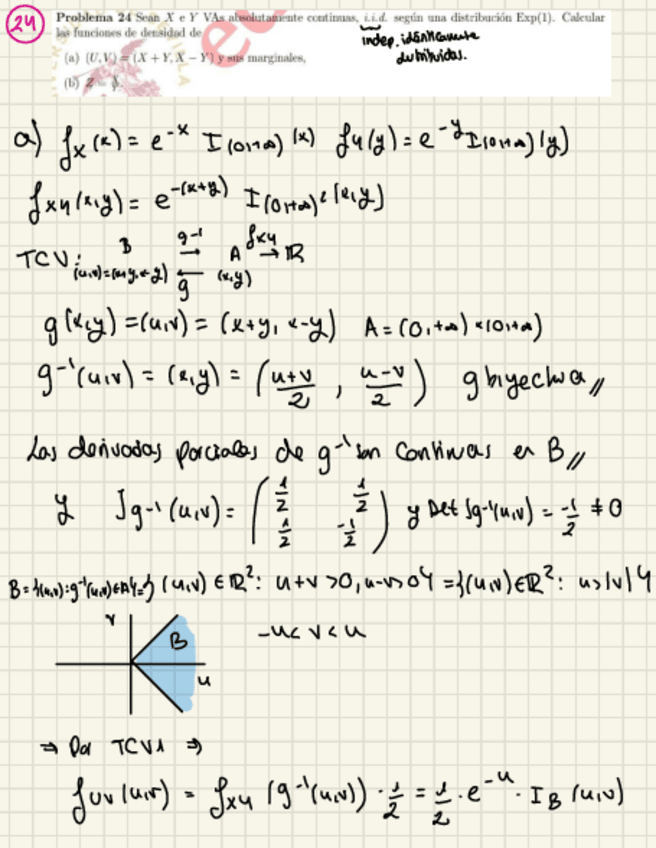 24
Problema 24 Sean X e Y VAs absolutamente continuas, i.i.d. según una distribución Exp(1). Calcular
las funciones de densidad de
indep. idénticamente
distribuidas.
(a) (U,V) = (X + Y, X − Y) y sus marginales,
(b) Z =
a) fx(x) = e^-x I(0,+∞)(x) fy(y) = e^-y I(0,+∞)(y)
fxy(x,y) = e^-(x+y) I(0,+∞)²(x,y)
TCV: B g^-1 → A fxy → ℝ
(u,v)=(x+y, x-y) ← g (x,y)
g(x,y) = (u,v) = (x+y, x-y) A = (0,+∞) × (0,+∞)
g^-1(u,v) = (x,y) = (u+v/2, u-v/2) g biyectiva //
Las derivadas parciales de g^-1 son continuas en B //
y Jg^-1(u,v) = (1/2 1/2 1/2 -1/2) y Det Jg^-1(u,v) = -1/2 ≠ 0
B = {(u,v): g^-1(u,v) ∈ A} = {(u,v) ∈ ℝ²: u+v >0, u-v>0} = {(u,v) ∈ ℝ²: u>|v|}
v
B
u
-u < v < u
⇒ Por TCV1 ⇒
fuv(u,v) = fxy(g^-1(u,v)) · 1/2 = 1/2 · e^-u · I B (u,v)